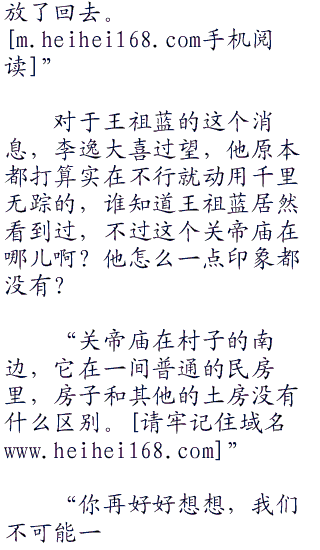 放了回去。
[m.heihei168.com手机阅
读]”
对于王祖蓝的这个消
息，李逸大喜过望，他原本
都打算实在不行就动用千里
无踪的，谁知道王祖蓝居然
看到过，不过这个关帝庙在
哪儿啊？他怎么一点印象都
没有？
“关帝庙在村子的南
边，它在一间普通的民房
里，房子和其他的土房没有
什么区别。[请牢记住域名
www.heihei168.com]”
“你再好好想想，我们
不可能一